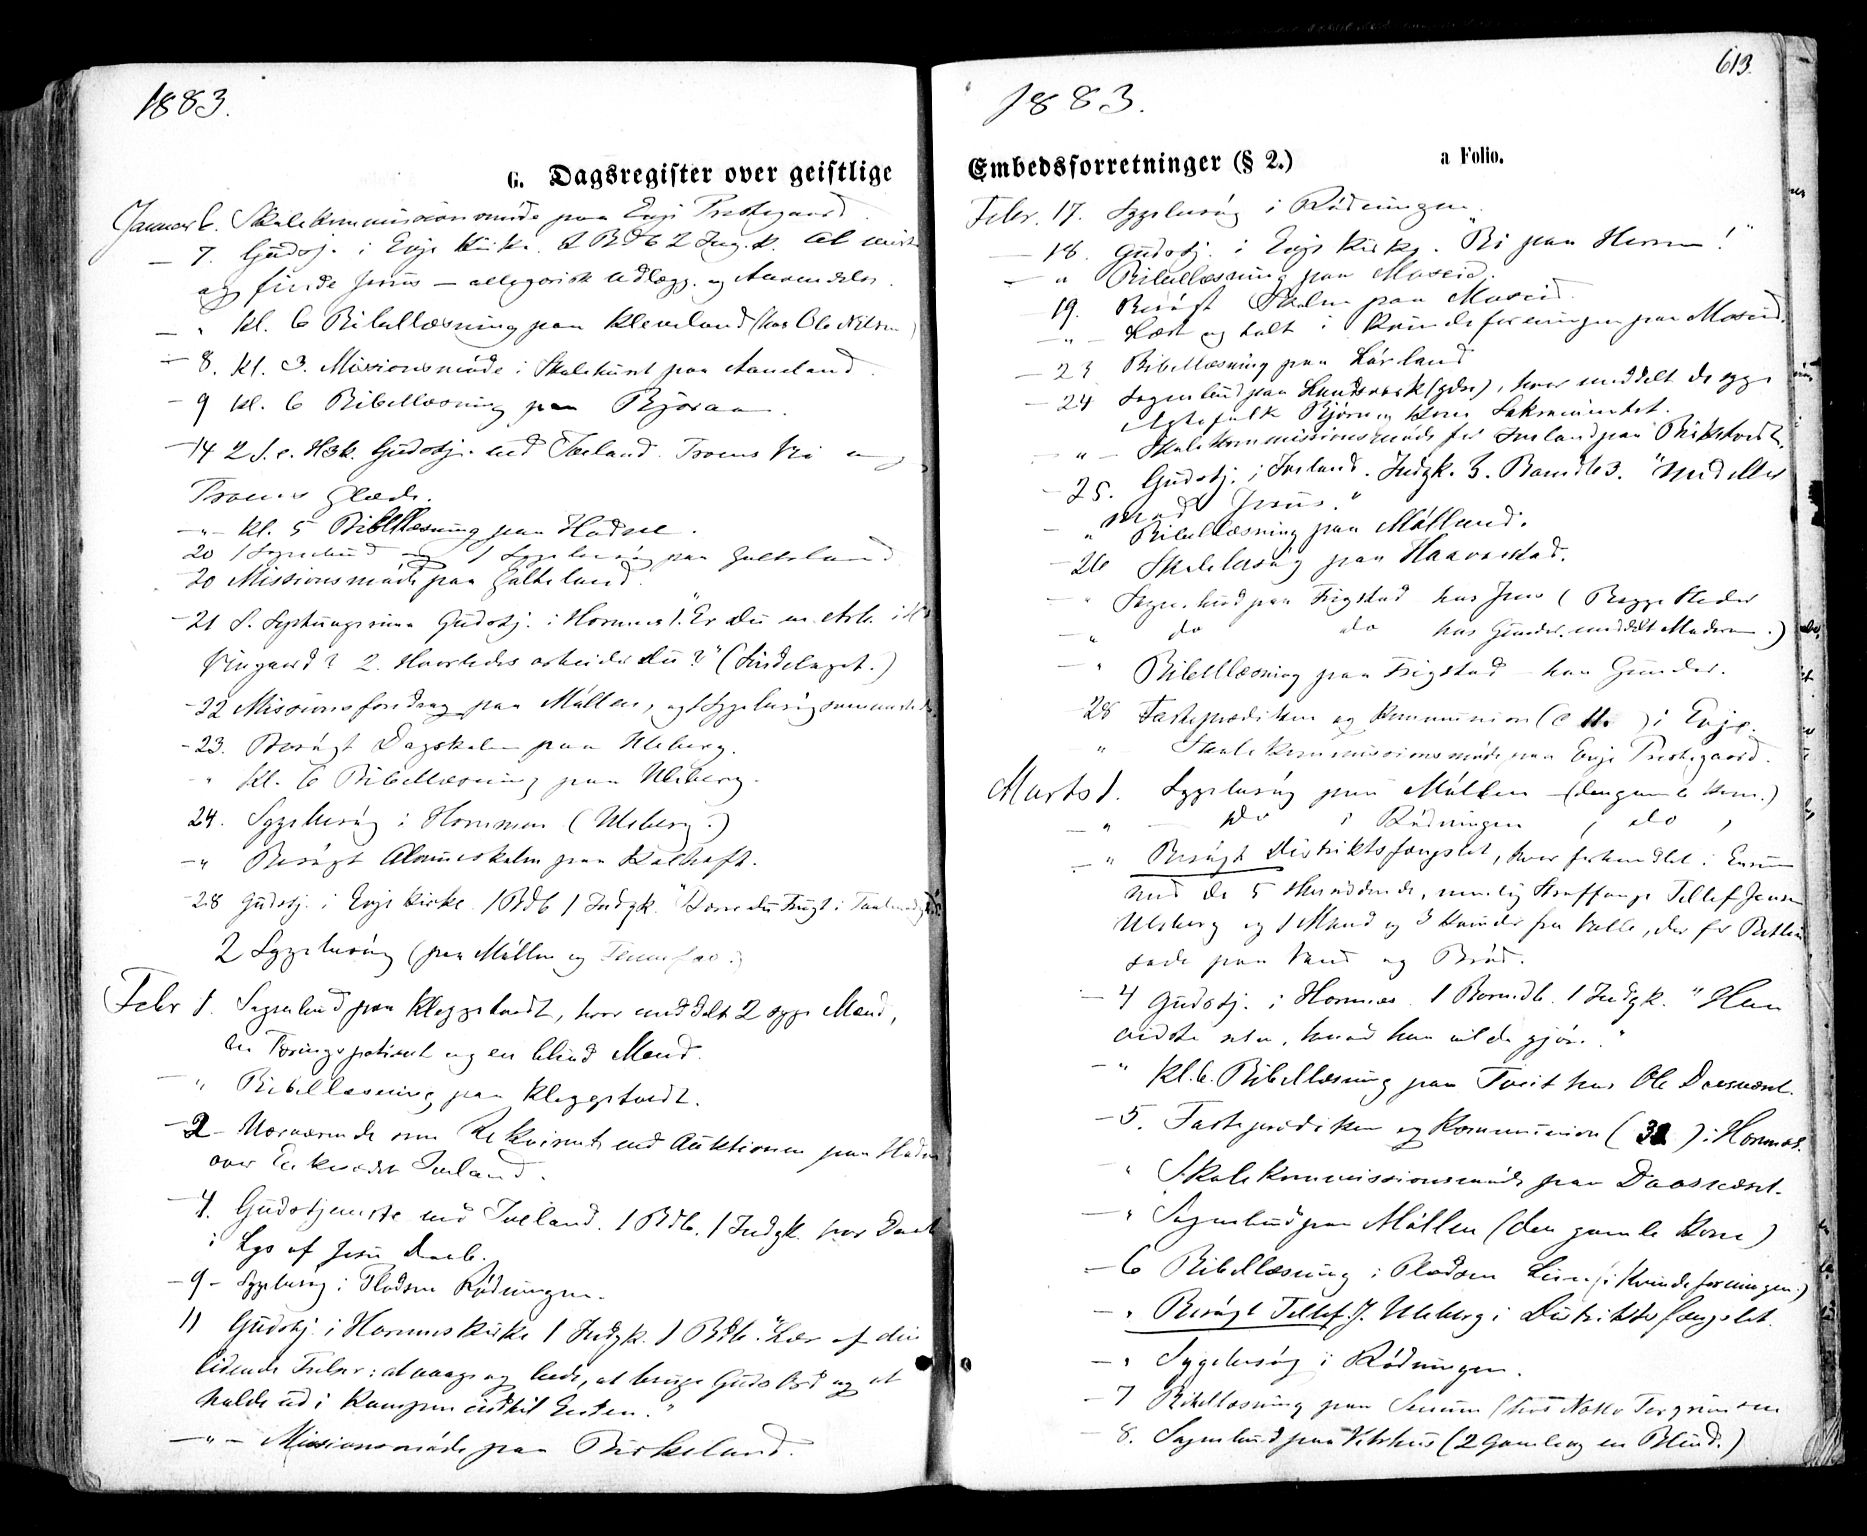 1883.
6. Dagsregister over geistlige
Januar 6. Skolekommissionsmøde paa Evje Prestegaard.
— 7. Gudstj. i Evje Kirke. 2 Bdb 2 Indg.k. At miste
og finde Jesus — allegorisk Udlægg. og Anvendelse.
— " Kl. 6 Bibellæsning paa Kleveland (hos Ole Nilsen)
— 8. Kl. 3. Missionsmøde i Skolehuset paa Aaneland.
— 9 Kl. 6 Bibellæsning paa Bjoraa.
— 14 2 S. e. H3k. Gudstj. ved Iveland. Troens Vei og
Troens Glæde.
—"— Kl. 5 Bibellæsning paa Hodne.
20 1 Sognebud og 1 Sygebesøg paa Galteland
20 Missionsmøde paa Galteland.
— 21 S. Septuagesima Gudstj. i Hornnes 1. "Er du en Arb. i H's
Vingaard? 2. Hvorledes arbeider du?" (Sindelaget.)
— 22 Missionsforedrag paa Møllen, og 1 Sygebesøg sammesteds.
— 23. Besøgt Dagskolen paa Uleberg.
— " Kl. 6 Bibellæsning paa Uleberg.
24. Sygebesøg i Hornnes (Uleberg.)
— " Besøgt Almueskolen paa Kalhaft.
— 28 Gudstj. i Evje Kirke. 1 Bdb 1 Indgk. "Bære du Frugt i Taalmodighed
2 Sygebesøg (paa Møllen og
Febr 1. Sognebud paa Kleppstvedt, hvor meddelt 2 syge Mænd,
en Tæringspatient og en blind Mand.
— " Bibellæsning paa Kleppstvedt.
— 2 Nærværende som Rekvirent ved Auktionen paa
over Enkesædet Iveland.
— 4. Gudstjeneste ved Iveland. 1 Bdb. 1 Indgk. vor Daab
i Lys af Jesu Daab.
— 9 — Sygebesøg i Pladsen Rødningen.
11 Gudstj. i Hornnes Kirke 1 Indgk. 1 Bdb. "Lær af din
lidende Frelser: at vaage og bede, at bruge Guds Ord og at
holde ud i Kampen indtil Enden."
—"— Missionsmøde paa Birkeland.
613.
1883.
Embedsforretninger (§ 2.)
a Folio.
Febr. 17. Sygebesøg i Rødningen.
— 18. Gudstj. i Evje Kirke. "Bi paa Herren!"
— " Bibellæsning paa Moseid.
19. Besøgt Skolen paa Moseid.
—"— Læst og talt i Kvindeforeningen paa Moseid.
— 23 Bibellæsning paa Lørland
— 24 Sognebud paa (ydre), hvor meddelt de syge
Ægtefolk Bjørn og Kone Sakramentet.
— " — Skolekommissionsmøde for Iveland paa Birkstvedt.
— 25. Gudstj. i Iveland. Indgk. 3. Barndb 3. "Midt
med Jesus."
— " Bibellæsning paa Mølland.
— 26 Skolebesøg paa Haaverstad.
— " Sognebud paa Frigstad hos Jens (Begge Steder
— " do do hos Gunder. meddelt Moderen.)
— " Bibellæsning paa Frigstad — hos Gunder.
— 28 Fasteprædiken og Kommunion (c 11. ) i Evje.
" Skolekommissionsmøde paa Evje Prestegaard.
Marts 1. Sygebesøg paa Møllen — (den gamle Kone.)
— " — do i Rødningen ( do )
— " Besøgt Distriktsfængslet, hvor forhandlet i Enrum
med de 5 Værende, nemlig Straffange Tellef Jensen
Uleberg og 1 Mand og 3 Kvinder fra Valle, der for
sade paa Vand og Brød.
— 4 Gudstj. i Hornnes. 1 Barndb. 1 Indgk. "Han
vidste selv, hvad han vilde gjøre."
— " Kl. 6. Bibellæsning paa Tveit hos Ole Daasnæst.
— 5. Fasteprædiken og Kommunion (32 ) i Hornnes.
" Skolekommissionsmøde paa Daasnæst.
— " Sognebud paa Møllen (den gamle Kone)
— 6 Bibellæsning i Pladsen Leiren (i Kvindeforeningen.)
— " Besøgt Tellef J. Uleberg i Distriktsfængslet.
— " Sygebesøg i Rødningen.
— 7 Bibellæsning paa Senum (hos Notto Torgrimsen
8. Sognebud paa Vetrhus (2 Gamle og en Blind.)